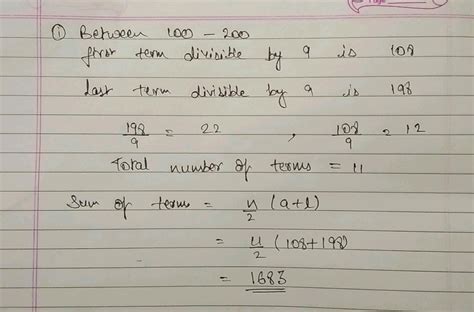 ① Between 100 - 200
first term divisible by 9 is 108
Last term divisible by 9 is 198
198/9 = 22 , 108/9 = 12
Total number of terms = 11
Sum of terms = n/2 (a+l)
= 11/2 (108+198)
= 1683